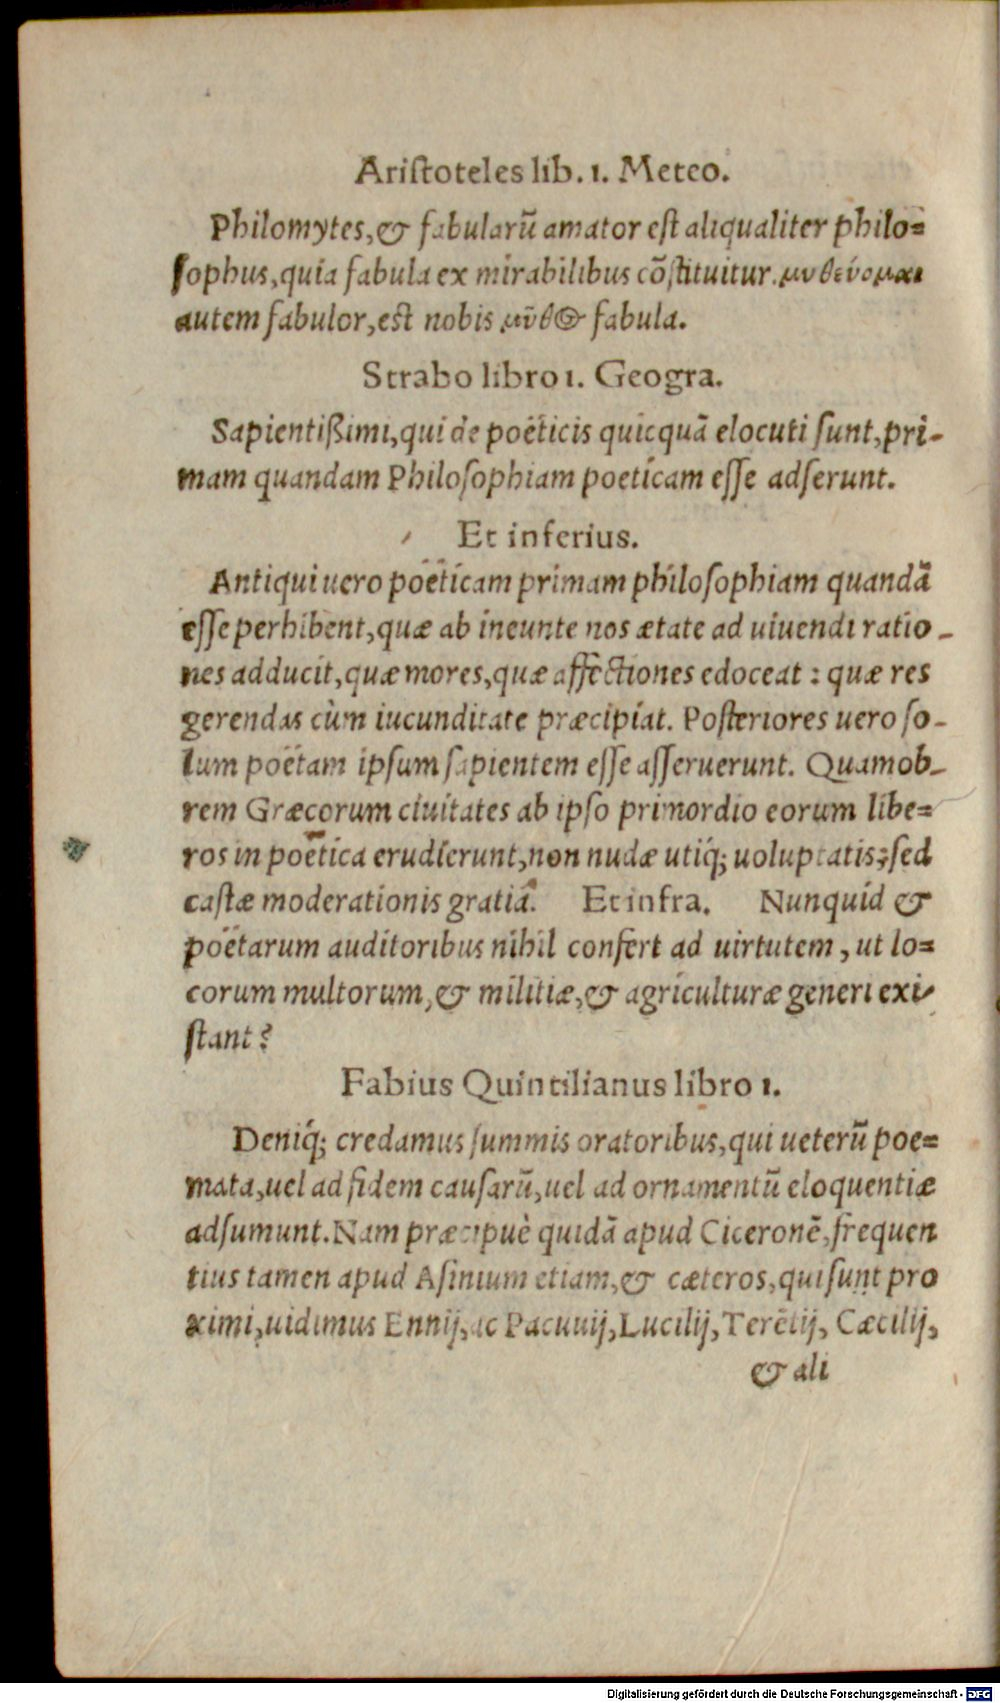 Ariſtoteles lib. 1. Meteo.
Philomytes, & fabularũ amator eſt aliqualiter philo=
ſophus, quia fabula ex mirabilibus cõſtituitur. μυθεύομαι
autem fabulor, eſt nobis μῦθος fabula.
Strabo libro 1. Geogra.
Sapientißimi, qui de poëticis quicquã elocuti ſunt, pri-
mam quandam Philoſophiam poeticam eſſe adſerunt.
Et inferius.
Antiqui uero poëticam primam philoſophiam quandã
eſſe perhibent, quæ ab ineunte nos ætate ad uiuendi ratio-
nes adducit, quæ mores, quæ affectiones edoceat : quæ res
gerendas cùm iucunditate præcipiat. Poſteriores uero ſo-
lum poëtam ipſum ſapientem eſſe aſſeruerunt. Quamob-
rem Græcorum ciuitates ab ipſo primordio eorum libe=
ros in poëtica erudierunt, non nudæ utiq; uoluptatis; ſed
caſtæ moderationis gratiâ. Et infra. Nunquid &
poëtarum auditoribus nihil confert ad uirtutem, ut lo=
corum multorum, & militiæ, & agriculturæ generi exi-
ſtant?
Fabius Quintilianus libro 1.
Deniq; credamus ſummis oratoribus, qui ueterũ poe=
mata, uel ad fidem cauſarũ, uel ad ornamentũ eloquentiæ
adſumunt. Nam præcipuè quidã apud Ciceronẽ, frequen
tius tamen apud Aſinium etiam, & cæteros, qui ſunt pro
ximi, uidimus Ennij, ac Pacuuij, Lucilij, Terẽtij, Cæcilij,
& ali
Digitalisierung gefördert durch die Deutsche Forschungsgemeinschaft - DFG